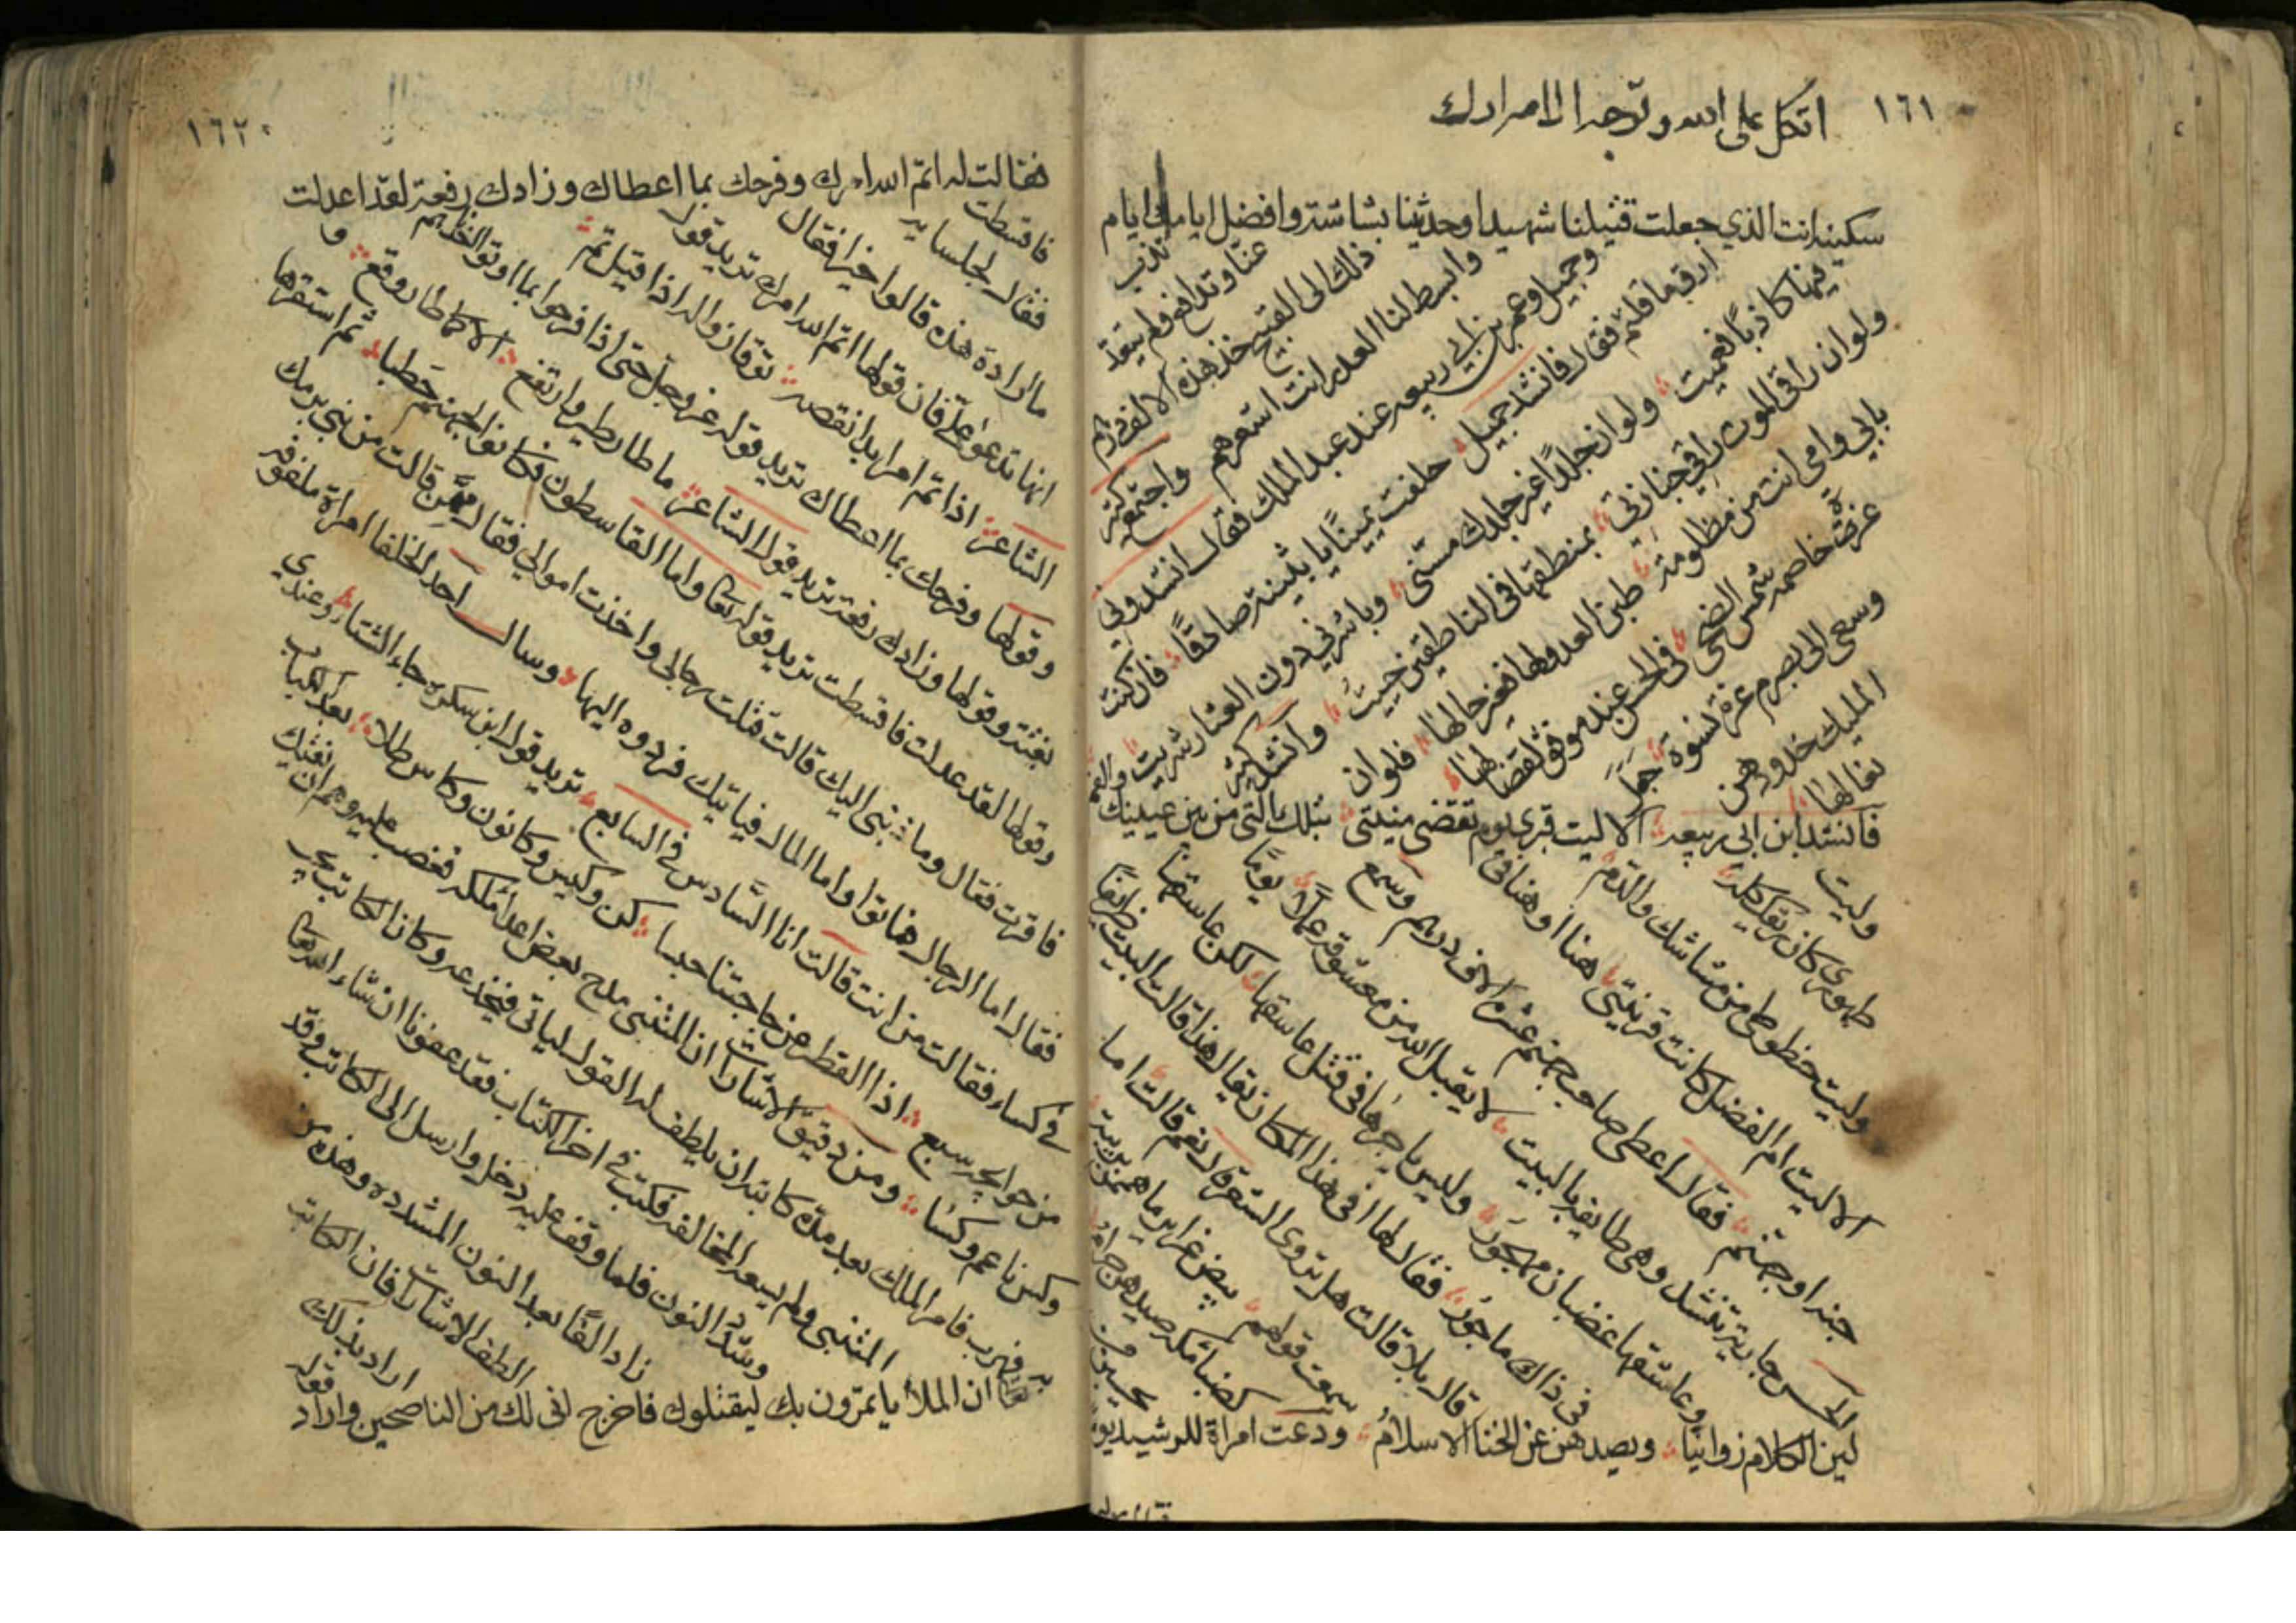 ١٦١
اتكل على الله وتوجه الا مرادك
سكينه انت الذي جعلت قتيلنا شهيدا وحديثنا بشاشته وافضل ايامك ايام
تذب عنا وتدافع فلم يتعد
ذلك الى القبيح خذ هذه الالف درهم
وابسط لنا العذر انت اشعرهم واجتمع كثير
وجميل وعمر بن ابي ربيعه عند عبد الملك فقال انشدوني
ارق ما قلتم فقال فانشد جميل حلفت يمينًا يا بثينة صادقًا فان كنت
فيها كاذبًا فعميت ولو ان جلدًا غير جلدك مسني وباشرني دون الشعار شريت
ولو ان راقي الموت راقي جنازتي بمنطقها في الناطقين حييت وانشد كثير
بابي وامي انت من مظلومة طبن العدو لها فغير حالها فلو ان
عزة خاصمه شمس الضحى في الحسن عند موفق لقضا لها
وسعى الى بصرم عزة نسوة جعل
المليك خدودهن
نعالها
فانشد ابن ابي ربيعه الا ليت قبري يوم تقضى منيتي بتلك التي من بين عينيك والفم
وليت
طهوري كان ريقك كله
وليت حظوطي من مشاشك والدم
الا ليت ام الفضل كانت قرينتي هنا او هنا في
جنه او جهنم فقال اعطي صاحب جهنم عشرة الاف درهم وسمع
الحسن جارية تنشد وهي طايفه بالبيت لا يقبل الله من معشوقة عملًا يومًا
وعاشقها غضبان مهجور وليس ياجرها في قتل عاشقها لكن عاشقها
في ذاك ماجور فقال لها افي هذا المكان يقال هذا قالت البيت ظريفًا
قال بلا قالت هل تروي الشعر قال نعم قالت اما
سمعت قولهم بيض غراير ما هممن بريبة
كضبا مكه صيدهن حرام
يحسبن من
لين الكلام زوانيا ويصدهن عن الخنا الاسلام ودعت امراة للرشيد يومًا
١٦٢
فقالت له اتم الله امرك وفرحك بما اعطاك وزادك رفعة لقد اعدلت
فاقسطت
فقال لجلسايه
ما ارادة هذه قالوا خيرا فقال
انها تدعو علي فان قولها اتم الله امرك تريد قول
الشاعر اذا تم امرا بدا نقصه توقا زوالا اذا قيل تم
وقولها وفرحك بما اعطاك تريد قوله عز وجل حتى اذا فرحوا بما اوتوا اخذناهم
بغتة وقولها وزادك رفعة تريد قول الشاعر ما طار طير وارتفع الا كما طار وقع و
وقولها لقد عدلت فاقسطت تريد قوله تعا واما القاسطون فكانوا لجهنم حطبا ثم استقرها
فاقرت فقال وما ذنبي اليك قالت قتلت رجالي واخذت اموالي فقال ممن قالت من بني برمك
فقال اما الرجال فماتوا واما المال فياتيك فردوه اليها وسال احد الخلفا امراة ملفوفه
في كساء فقالت من انت قالت انا السادس في السابع تريد قول ابن سكره جاء الشتاء وعندي
من حوايجه سبع اذا القطر عن حاجتنا حبسا كن وكيس وكانون وكاس طلا بعد الكباب
وكس ناعم وكسا ومن دقيق الاشارات ان المثنبي مدح بعض اعدا ملكه فغضب عليه وهم ان يفتك
به فهرب فامر الملك بعد مدة كاتبه ان يلطف له القول لياتي فيخدعه وكان الكاتب يحب
المثنبي ولم يسعه المخالفه فكتب في اخر الكتاب فقد عفونا ان شاء الله تعا
وشدد النون فلما وقف عليه دخل وارسل الى الكاتب وقد
زاد الفًا بعد النون المشدده وهذه من
الطف الاشارات فان الكاتب
اراد بذلك
قوله
تعا ان الملأ ياتمرون بك ليقتلوك فاخرج اني لك من الناصحين واراد